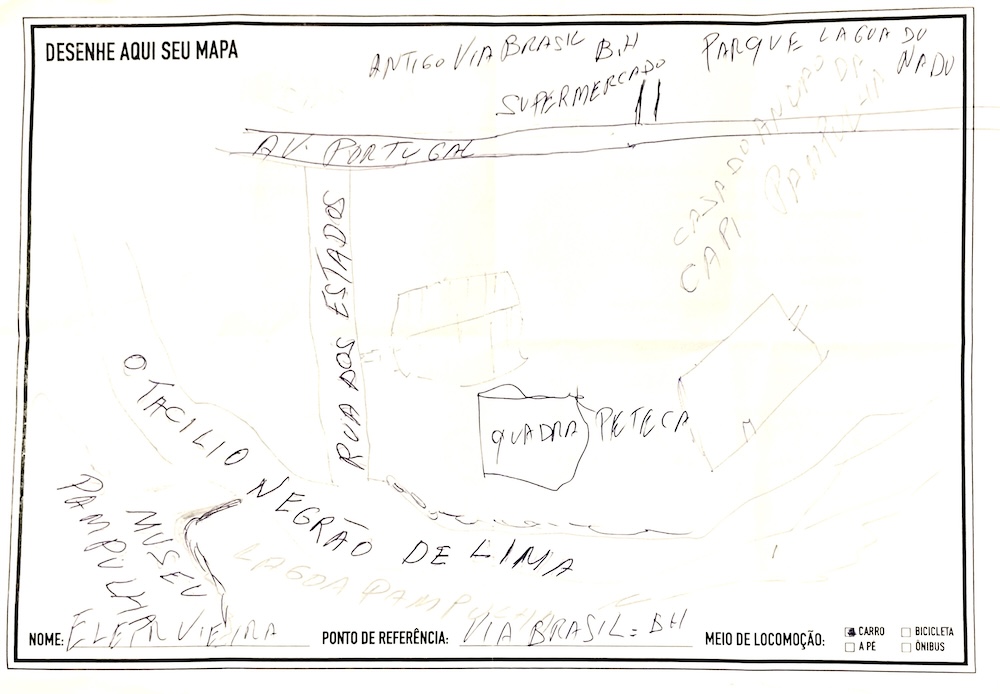 DESENHE AQUI SEU MAPA
ANTIGO VIA BRASIL B.H
SUPERMERCADO
PARQUE LAGOA DO
NADO
AV. PORTUGAL
CASA DO
CAPI
PAMPULHA
RUA DOS ESTADOS
QUADRA PETECA
OTACILIO NEGRÃO DE LIMA
MUSEU
PAMPULHA
LAGOA PAMPULHA
NOME: VIEIRA
PONTO DE REFERÊNCIA: VIA BRASIL = BH
MEIO DE LOCOMOÇÃO:
CARRO
BICICLETA
A PÉ
ÔNIBUS